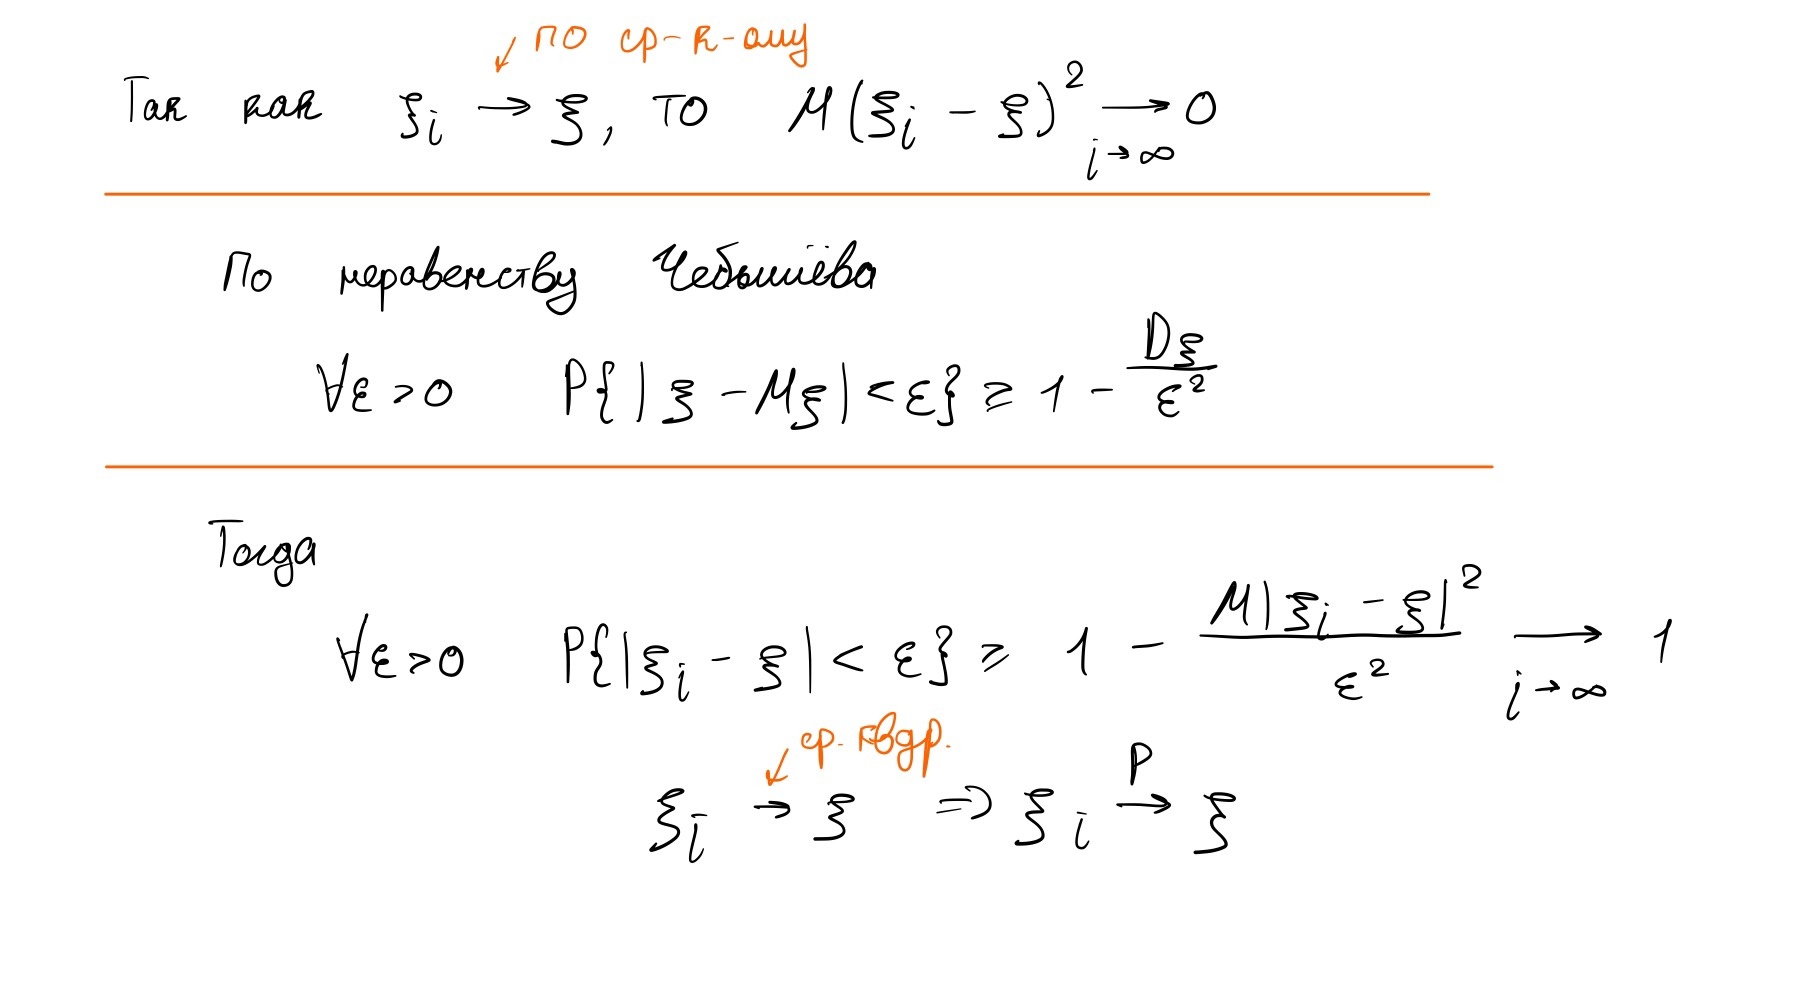 по ср-к-ому
Так как ξᵢ → ξ, то M(ξᵢ - ξ)² → 0
i→∞
По неравенству Чебышёва
∀ε > 0 P{|ξ - Mξ| < ε} ⩾ 1 - Dξ/ε²
Тогда
∀ε > 0 P{|ξᵢ - ξ| < ε} ⩾ 1 - M|ξᵢ - ξ|²/ε² → 1
i→∞
ср. квдр. P
ξᵢ → ξ ⇒ ξᵢ → ξ